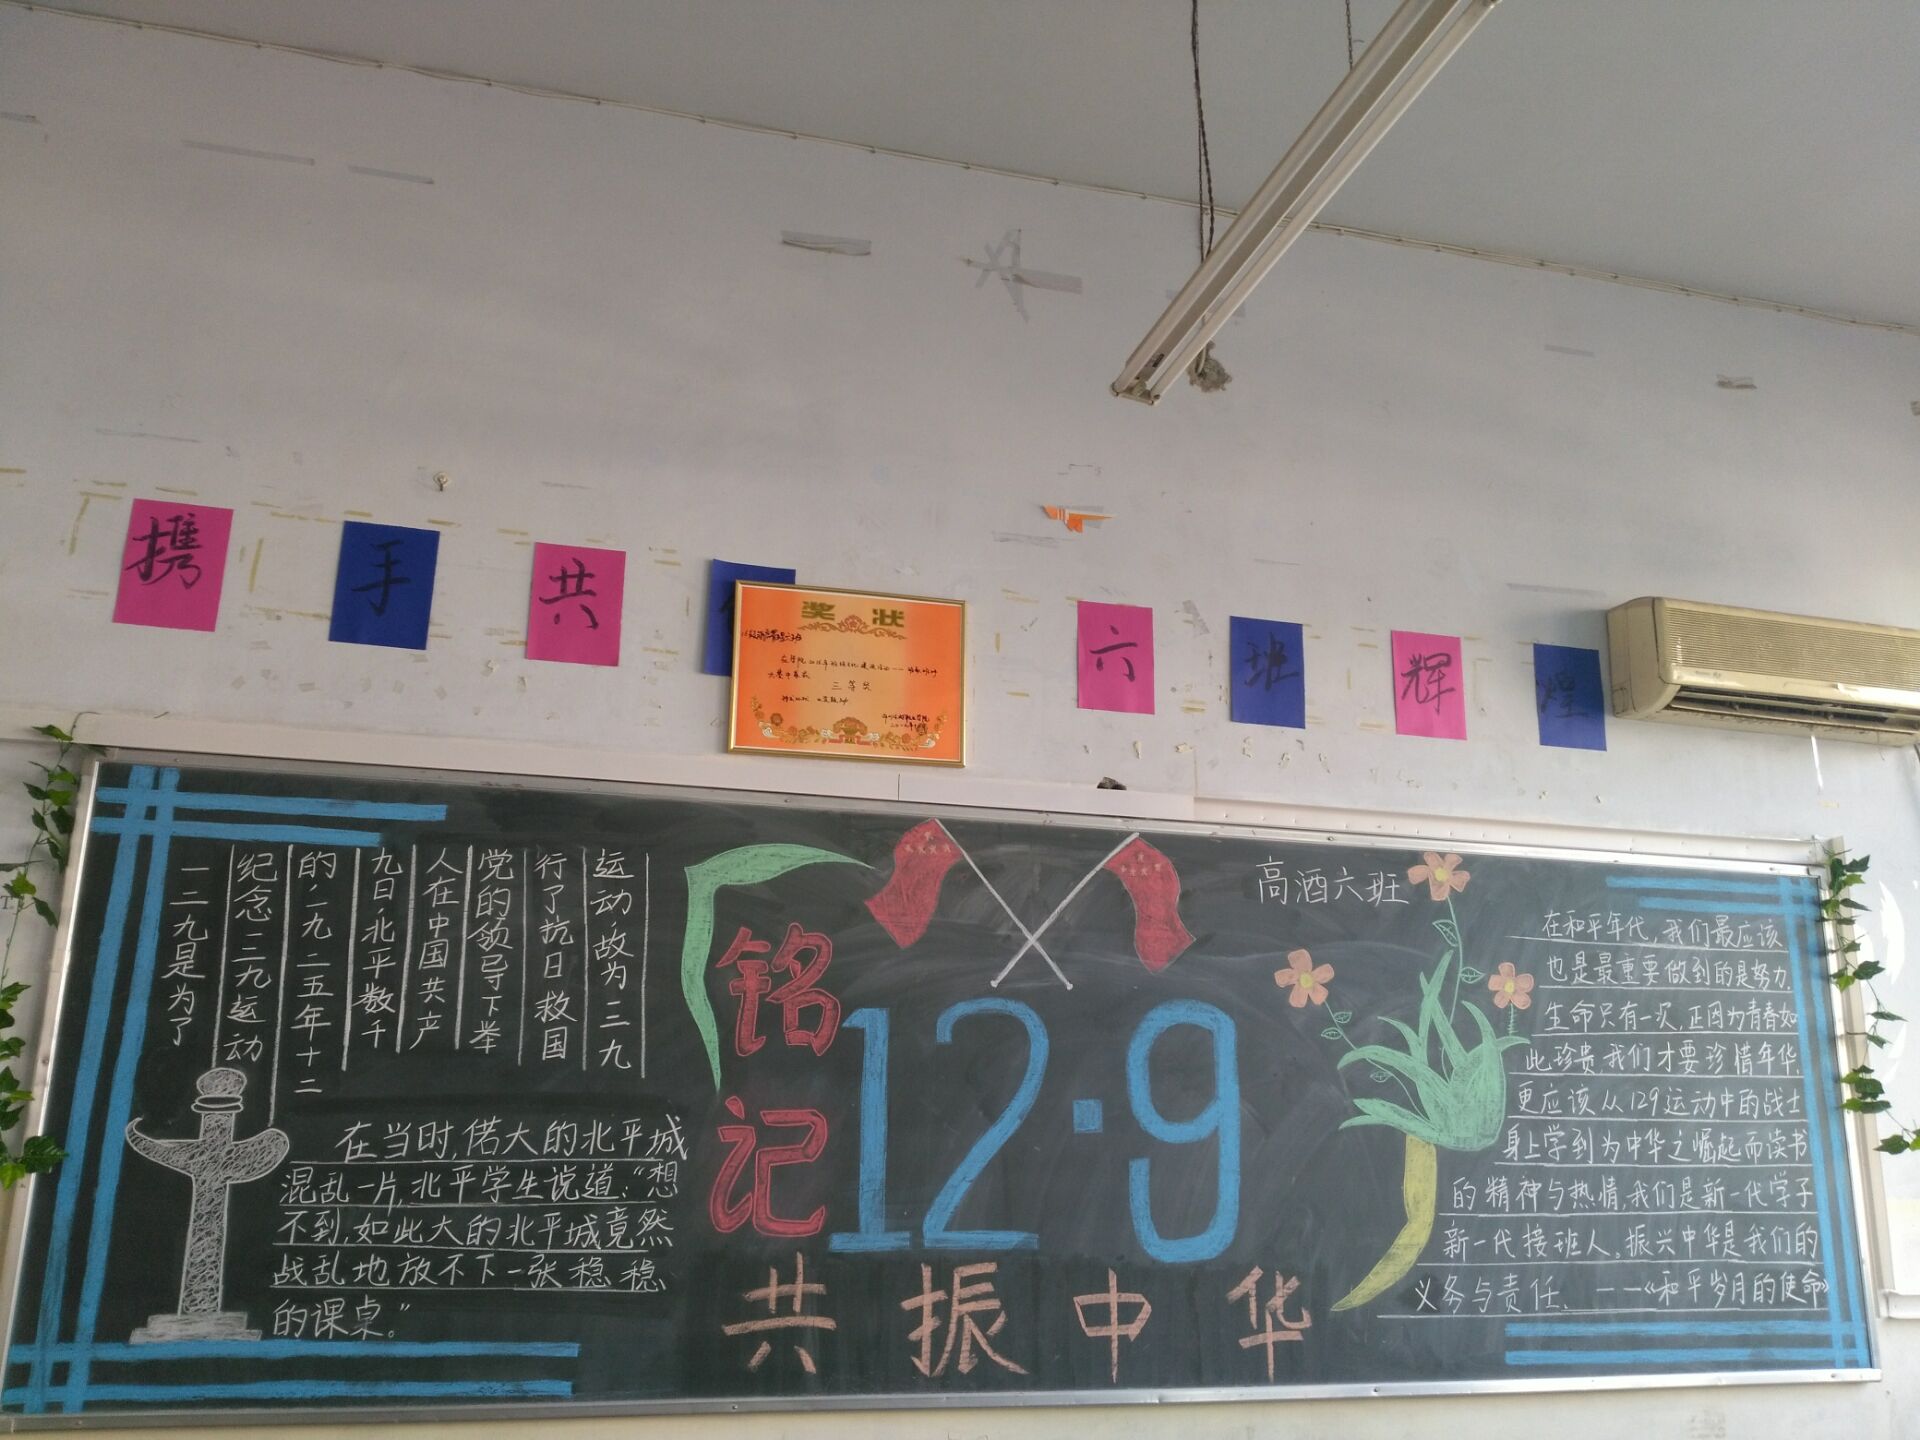 携手共
六班辉煌
奖状
三等奖
一二九是为了
纪念一二九运动
的,一九二五年十二
九日,北平数千
人在中国共产
党的领导下举
行了抗日救国
运动,故为一二九
在当时,偌大的北平城
混乱一片,北平学生说道:“想
不到,如此大的北平城竟然
战乱地放不下一张稳稳
的课桌。”
铭记
12·9
共振中华
高酒六班
在和平年代,我们最应该
也是最重要做到的是努力.
生命只有一次,正因为青春如
此珍贵,我们才要珍惜年华.
更应该从129运动中的战士
身上学到为中华之崛起而读书
的精神与热情,我们是新一代学子
新一代接班人。振兴中华是我们的
义务与责任. ——《和平岁月的使命》